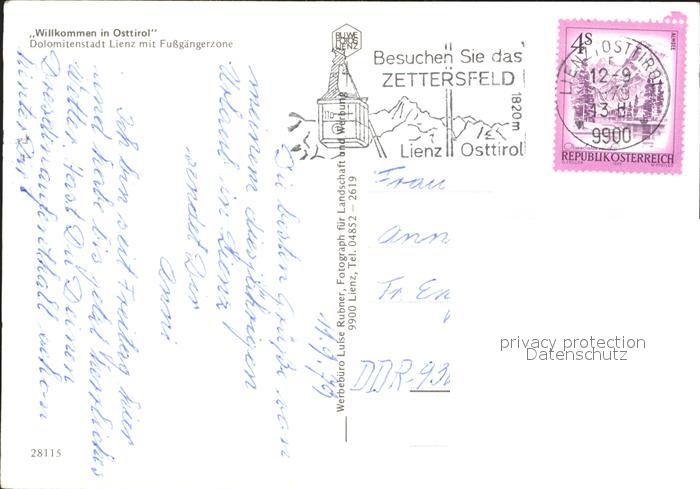 „Willkommen in Osttirol"
Dolomitenstadt Lienz mit Fußgängerzone
LIENZ
Besuchen Sie das
ZETTERSFELD
1820m
Lienz Osttirol
LIENZ, OSTTIROL
12-9
13
9900
4S
ALMSEE
REPUBLIK ÖSTERREICH
11.9.79
Die besten Grüße von
meinem diesjährigen
Urlaub in Lienz
sendet Dir
Anni
Ich bin seit Freitag hier
und habe bis jetzt herrliches
Wetter. Hast Du Deinen
Dresdenaufenthalt schon
hinter Dir?
Werbebüro Luise Rubner, Fotograph für Landschaft und Werbung
9900 Lienz, Tel. 04852 - 2619
Frau
Ann
Fr. En
DDR-93
privacy protection
Datenschutz
28115